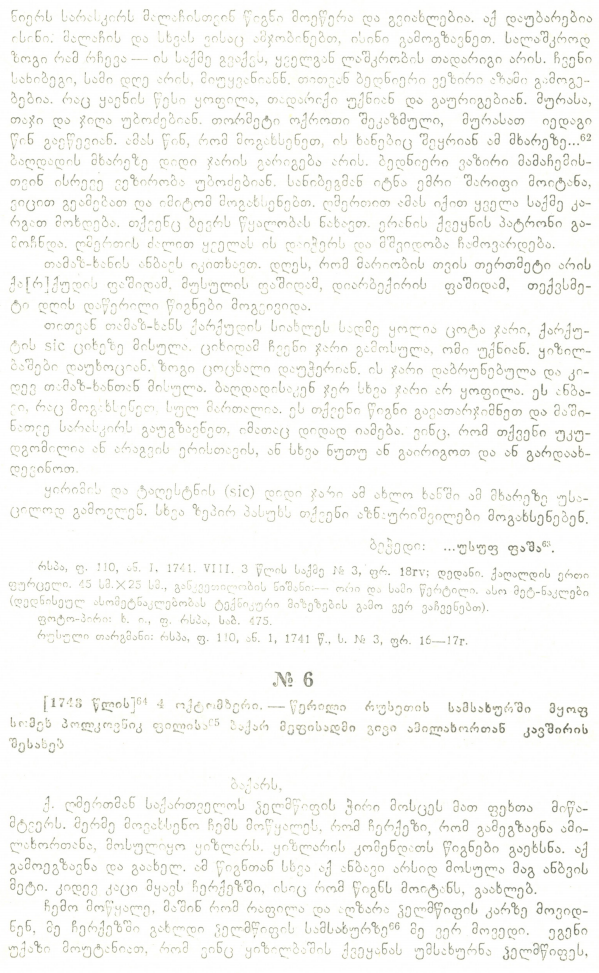 ნიერს სარასკირს მალაჩისთვინ წიგნი მოეწერა და გვიახლებია. აქ დაუბარებია
ისინი. მალაჩის და სხვას ვისაც ამჯობინებთ, ისინი გამოგზავნეთ. სალაშკროდ
ზოგი რამ რჩევა — ის საქმე გვაქვს, ყველგან ლაშკრობის თადარიგი არის. ჩვენი
სახიბეგი, სამი დღე არის, მიუყვანიანნ. თითვან ბედნიერი ვეზირი აზამი გამოგე-
ბებია. რაც ყაენის წესი ყოფილა, თადარიქი უქნიან და გაურიგებიან. მურასა,
თაჯი და ჯიღა უბოძებიან. თორმეტი ოქროთი შეკაზმული, მურასათ იედაგი
წინ გაუწევიან. ამას წინ, რომ მოგახსენეთ, ის ხანებიც შეყრიან ამ მხარეზე...⁶²
ბაღდადის მხარეზე დიდი ჯარის გარიგება არის. ბედნიერი ვაზირი მამაჩემის-
თვინ ისრევე ვეზირობა უბოძებიან. სანიბეგმან იტნა ემრი შარიფი მოიტანა,
ვიცით გეამებათ და იმიტომ მოგახსენებთ. ღმერთით ამას იქით ყველა საქმე კა-
რგათ მოხდება. თქვენც ბევრს წყალობას ნახავთ. ერანის ქვეყნის პატრონი გა-
მოჩნდა. ღმერთის ძალით ყველას ის დაიჭერს და მშვიდობა ჩამოვარდება.
თამაზ-ხანის ანბავს იკითხავთ. დღეს, რომ მარიობის თვის თერთმეტი არის
ქა[რ]ქუდის ფაშიდამ, მუსულის ფაშიდამ, დიარბექირის ფაშიდამ, თექვსმე-
ტი დღის დაწერილი წიგნები მოგვივიდა.
თითვან თამაზ-ხანს ქარქუდის სიახლეს საღმე ყოლია ცოტა ჯარი, ქარქუ-
ტის sic ციხეზე მისულა. ციხიდამ ჩვენი ჯარი გამოსულა, ომი უქნიან. ყიზილ-
ბაშები დაუხოციან. ზოგი ცოცხალი დაუჭერიან. ის ჯარი დაბრუნებულა და კი-
დევ თამაზ-ხანთან მისულა. ბაღდადისაკენ ჯერ სხვა ჯარი არ ყოფილა. ეს ანბა-
ვი, რაც მოგახსენეთ, სულ მართალია. ეს თქვენი წიგნი გავათარჯიმნეთ და მაში-
ნათვე სარასკირს გაუგზავნეთ, იმათაც დიდად იამება. ვინც, რომ თქვენი უკუ-
დგომილია ან არაგვის ერისთავის, ან სხვა ნუთუ ან გაირიგოთ და ან გარდაახ-
დევინოთ.
ყირიმის და ტაღესტნის (sic) დიდი ჯარი ამ ახლო ხანში ამ მხარეზე უსა-
ცილოდ გამოვლენ. სხვა ზეპირ პასუხს თქვენი აზნაურიშვილები მოგახსენებენ.
ბეჭედი: ...უსუფ ფაშა⁶³.
რსპა, ფ. 110, ან. I. 1741. VIII. 3 წლის საქმე № 3, ფრ. 18rv; დედანი. ქაღალდის ერთი
ფურცელი. 45 სმ.×25 სმ., განკვეთილობის ნიშანი:— ორი და სამი წერტილი. ასო მეტ-ნაკლები
(დედნისეულ ასომეტნაკლებობას ტექნიკური მიზეზების გამო ვერ ვაჩვენებთ).
ფოტო-პირი: ხ. ი., ფ. რსპა, საბ. 475.
რუსული თარგმანი: რსპა, ფ. 110, ან. 1, 1741 წ., ს. № 3, ფრ. 16—17r.
№ 6
[1743 წლის]⁶⁴ 4 ოქტომბერი. — წერილი რუსეთის სამსახურში მყოფ
სომეს პოლკოვნიკ ფილისა⁶⁵ ბაქარ მეფისადმი გივი ამილახორთან კავშირის
შესახებ
ბაქარს,
ქ. ღმერთმან საქართველოს ჴელმწიფის ჭირი მოსცეს მათ ფეხთა მიწა-
მტვერს. მერმე მოვახსენო ჩემს მოწყალეს, რომ ჩერქეზი, რომ გამეგზავნა ამი-
ლახორთანა, მოსულიყო ყიზლარს. ყიზლარის კომენდათს წიგნები გაეხსნა. აქ
გამოეგზავნა და გაახელ. ამ წიგნთან სხვა აქ ანბავი არსიდ მოსულა მაგ ანბვის
მეტი. კიდევ კაცი მყავს ჩერქეზში, ისიც რომ წიგნს მოიტანს, გაახლებ.
ჩემო მოწყალე, მაშინ რომ რაფილა და აღზარა ჴელმწიფის კარზე მოვიდ-
ნენ, მე ჩერქეზში გახლდი ჴელმწიფის სამსახურზე⁶⁶ მე ვერ მოვედი. ეგენი
უქაზი მოუტანიათ, რომ ვინც ყიზილბაშის ქვეყანას უმსახურნა ჴელმწიფეს,